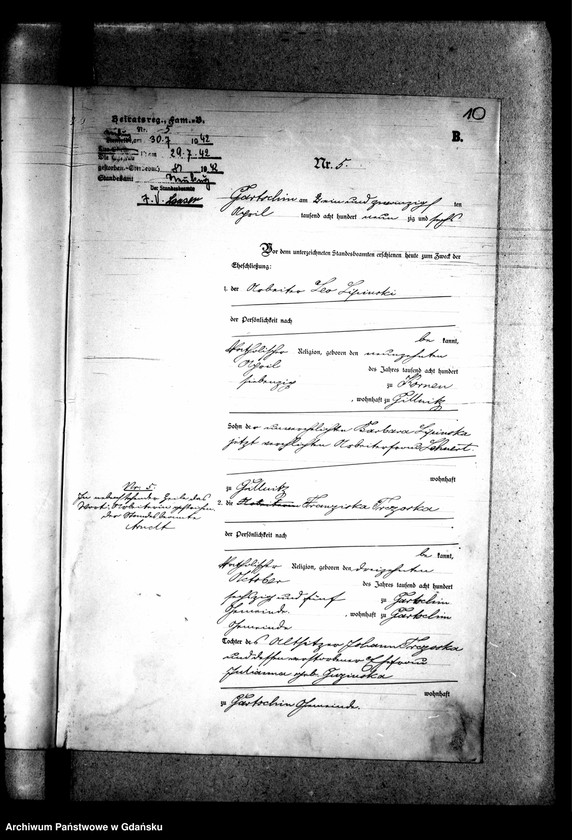 10
B.
Heiratsreg., Fam.-B.
Nr. 5
am 30.7 1942
29.7.42
Standesamt
Der Standesbeamte
Nr. 5.
Gartschin am drei und zwanzig ten
April tausend acht hundert neun zig und sechs
Vor dem unterzeichneten Standesbeamten erschienen heute zum Zweck der
Eheschließung:
1. der Arbeiter Leo Lipinski
der Persönlichkeit nach
be kannt,
katholischer Religion, geboren den neunzehnten
April des Jahres tausend acht hundert
siebenzig zu Kornen
, wohnhaft zu Gillnitz
Sohn der unverehelichten Barbara Lipinska
jetzt verehelichten Arbeiterfrau
wohnhaft
zu Gillnitz
2. die Arbeiterin Franziska Trzeska
der Persönlichkeit nach
be kannt,
katholischer Religion, geboren den dreizehnten
October des Jahres tausend acht hundert
sechszig und fünf zu Gartschin
Gemeinde , wohnhaft zu Gartschin
Gemeinde
Tochter des Altsitzer Johann Trzeska
und dessen verstorbener Ehefrau
Julianna geb.
wohnhaft
zu Gartschin Gemeinde.
Nr. 5.
In nebenstehender Zeile das
Wort: Arbeiterin gestrichen.
Der Standesbeamte
Arndt
Archiwum Państwowe w Gdańsku